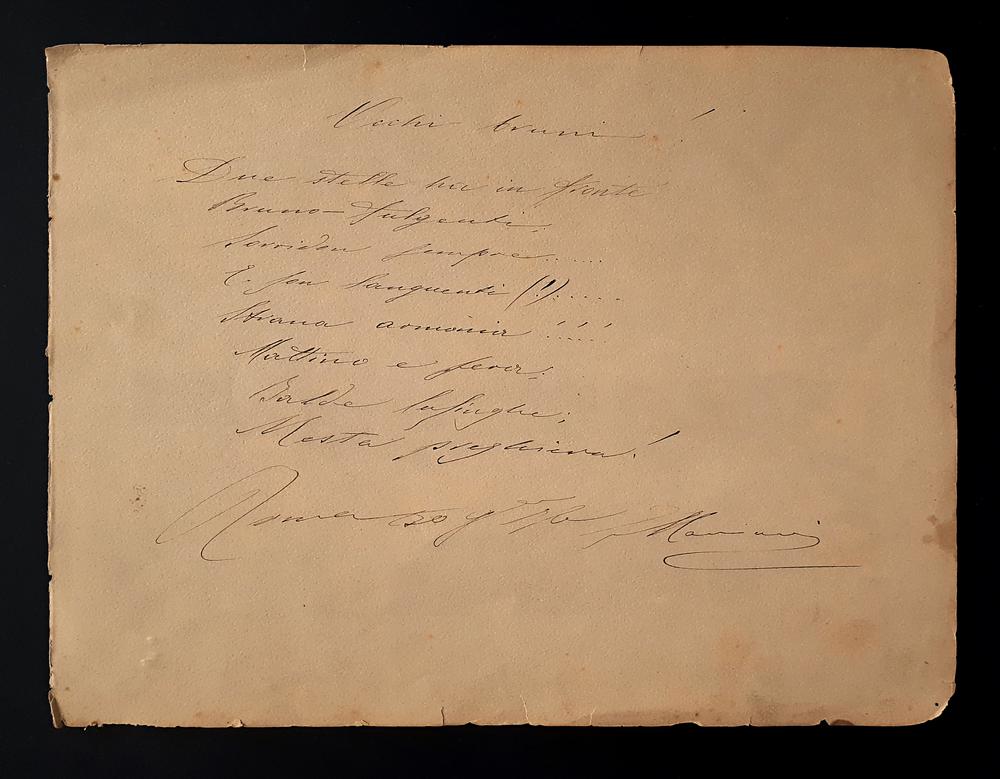 Occhi bruni !
Due stelle ha in fronte
Bruno-fulgenti;
Sorridon sempre.....
E son languenti (!).....
Strana armonia !.!.!..
Mattino e sera;
Balde lusinghe;
Mesta preghiera!
Roma 20 Mariani